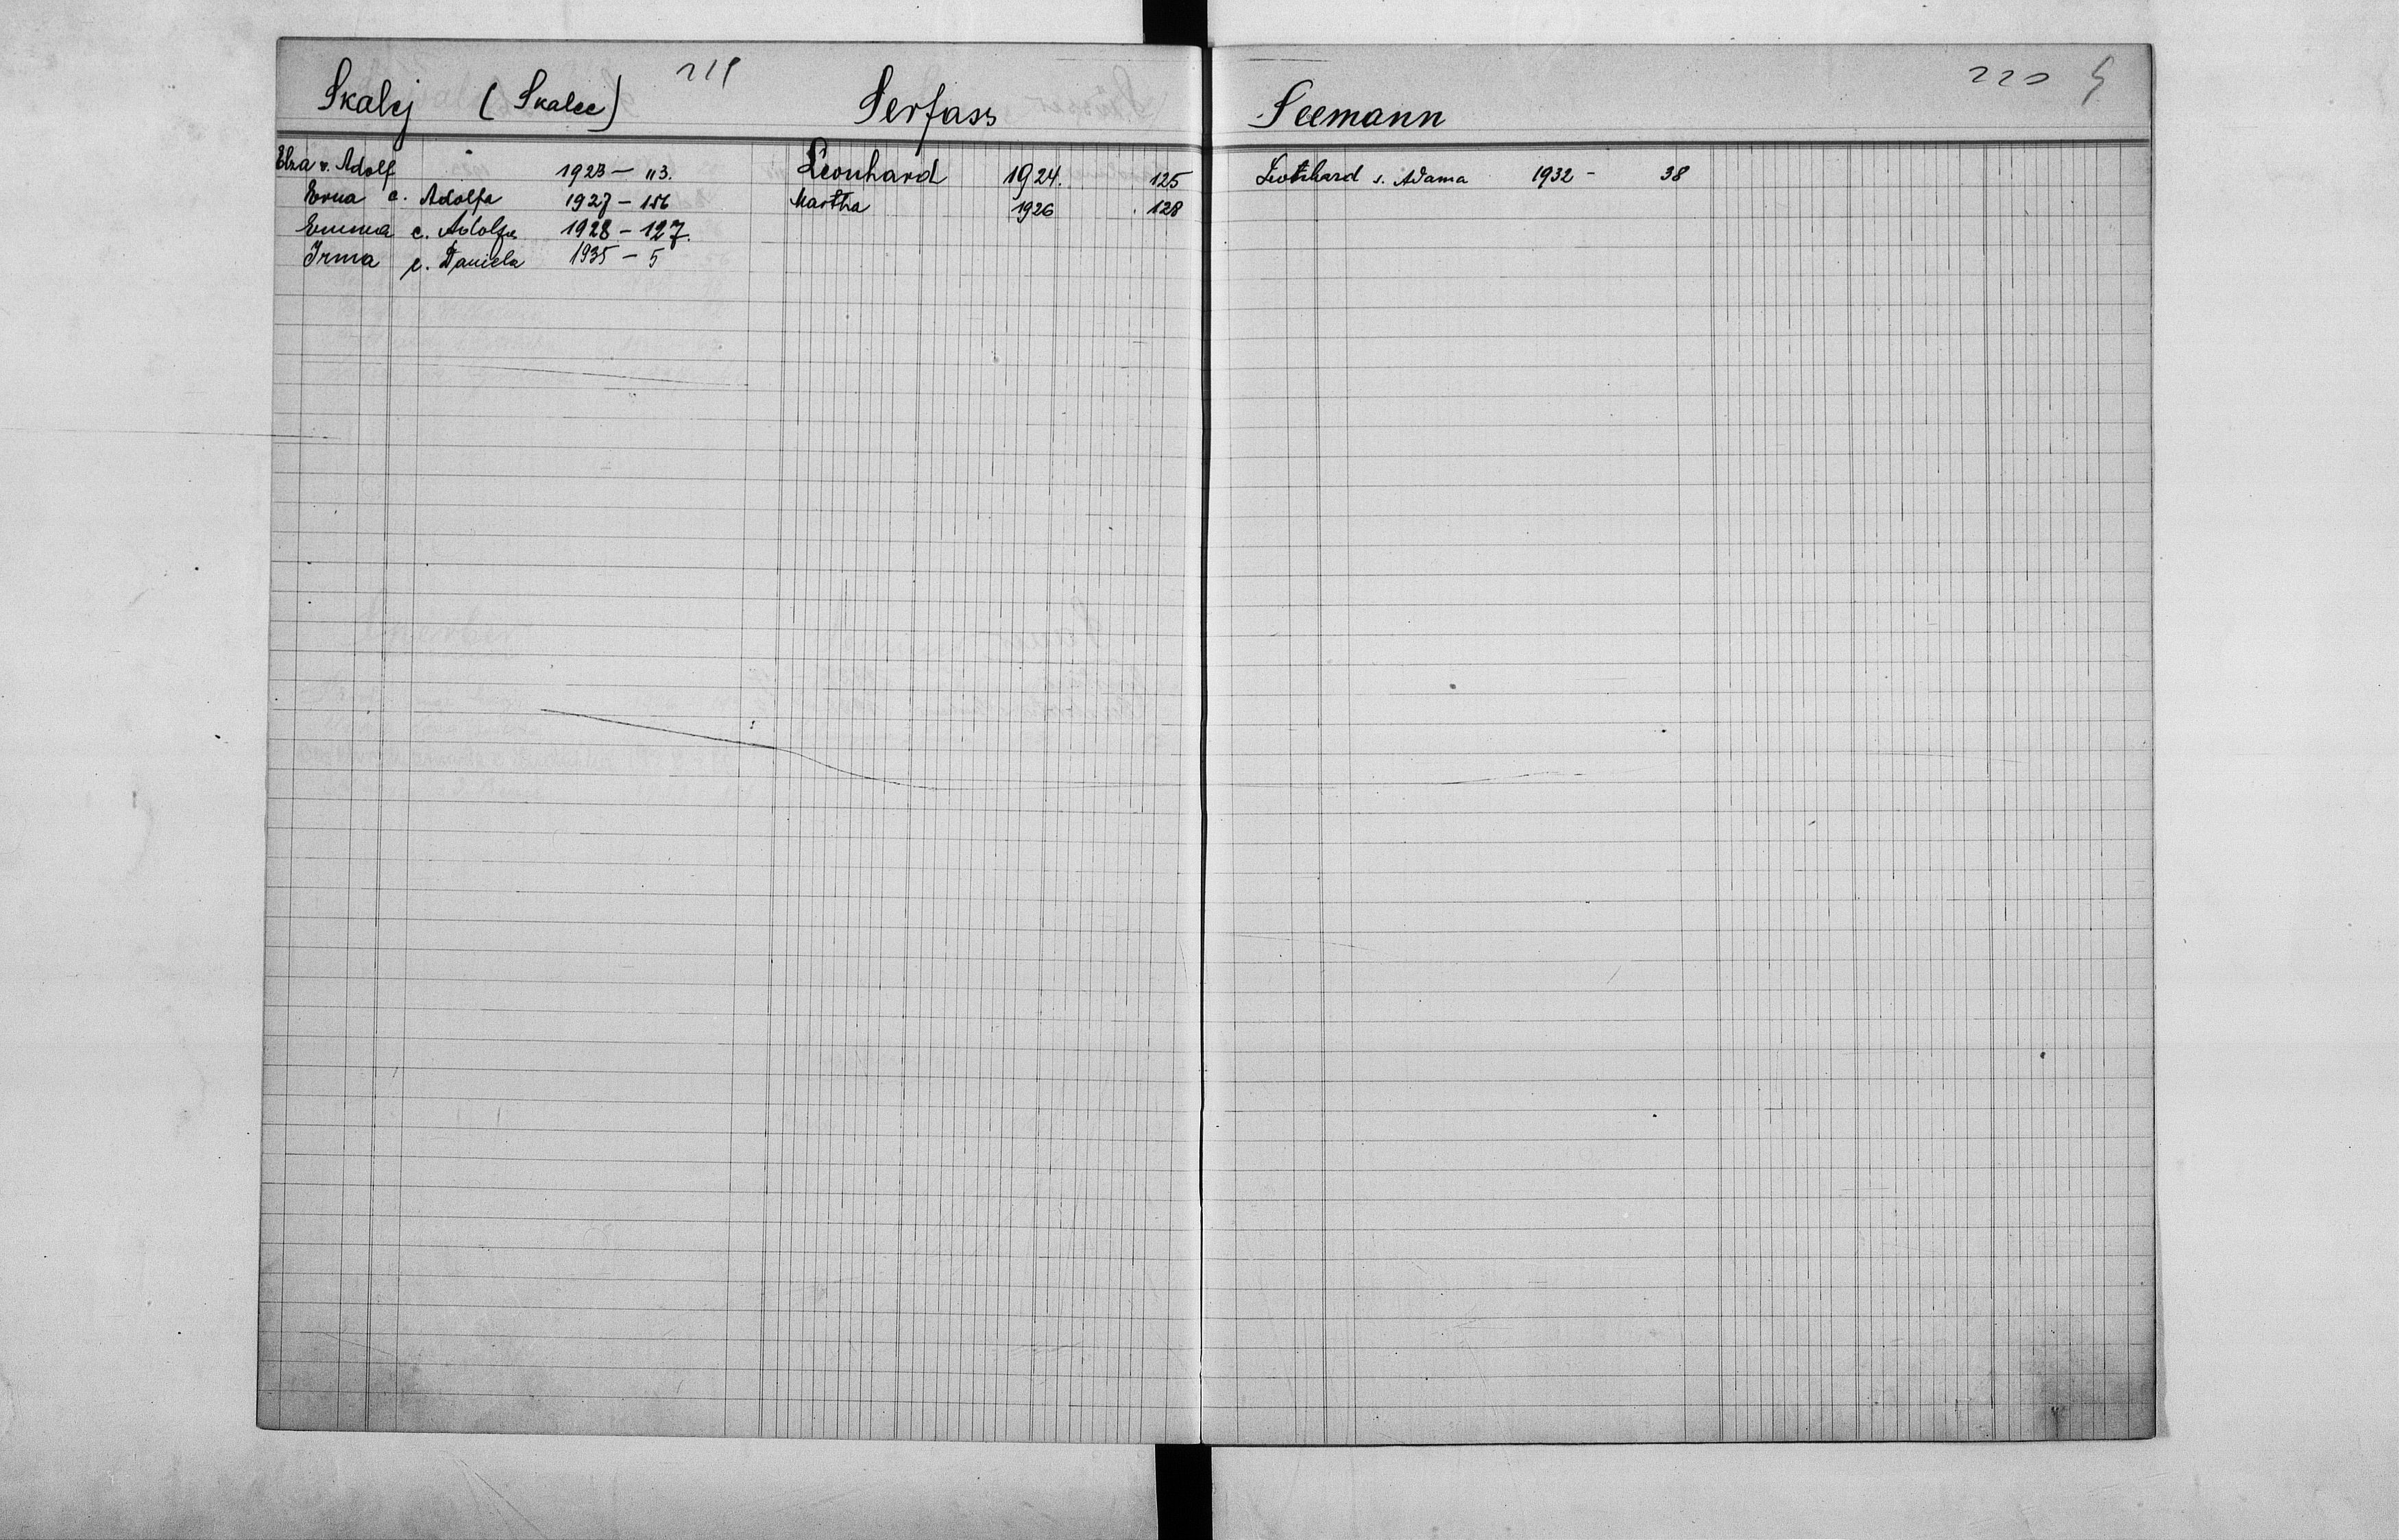 219
Skalej (Skalec)
Elza v. Adolf 1923 — 113.
Erna c. Adolfa 1927 — 156
Emma c. Adolfa 1928 — 127.
Irma c. Daniela 1935 — 5
Serfass
Leonhard 1924. 125
Martha 1926 128
220 S
Seemann
Leonhard s. Adama 1932 — 38